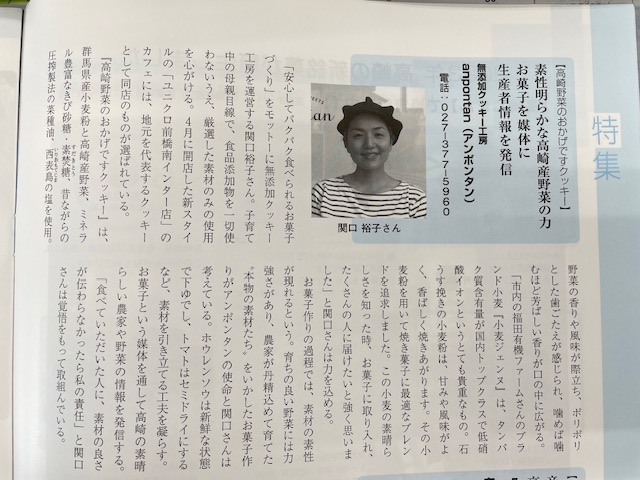 特集
【高崎野菜のおかげですクッキー】
素性明らかな高崎産野菜の力
お菓子を媒体に
生産者情報を発信
無添加クッキー工房
anpontan（アンポンタン）
電話：027―377―5960
関口 裕子さん
「安心してパクパク食べられるお菓子
づくり」をモットーに無添加クッキー
工房を運営する関口裕子さん。子育て
中の母親目線で、食品添加物を一切使
わないうえ、厳選した素材のみの使用
を心がける。４月に開店した新スタイ
ルの「ユニクロ前橋南インター店」の
カフェには、地元を代表するクッキー
として同店のものが選ばれている。
『高崎野菜のおかげですクッキー』は、
群馬県産小麦粉と高崎産野菜、ミネラ
ル豊富なきび砂糖・素焚糖、昔ながらの
圧搾製法の菜種油、西表島の塩を使用。
野菜の香りや風味が際立ち、ポリポリ
とした歯ごたえが感じられ、噛めば噛
むほど芳ばしい香りが口の中に広がる。
「市内の福田有機ファームさんのブラ
ンド小麦『小麦ジェンヌ』は、タンパ
ク質含有量が国内トップクラスで低硝
酸イオンというとても貴重なもの。石
うす挽きの小麦粉は、甘みや風味がよ
く、香ばしく焼きあがります。その小
麦粉を用いて焼き菓子に最適なブレン
ドを追求しました。この小麦の素晴ら
しさを知った時、お菓子に取り入れ、
たくさんの人に届けたいと強く思いま
した」と関口さんは力を込める。
お菓子作りの過程では、素材の素性
が現れるという。育ちの良い野菜には力
強さがあり、農家が丹精込めて育てた
〝本物の素材たち〟をいかしたお菓子作
りがアンポンタンの使命と関口さんは
考えている。ホウレンソウは新鮮な状態
で下ゆでし、トマトはセミドライにする
など、素材を引き立てる工夫を凝らす。
お菓子という媒体を通して高崎の素晴
らしい農家や野菜の情報を発信する。
「食べていただいた人に、素材の良さ
が伝わらなかったら私の責任」と関口
さんは覚悟をもって取組んでいる。